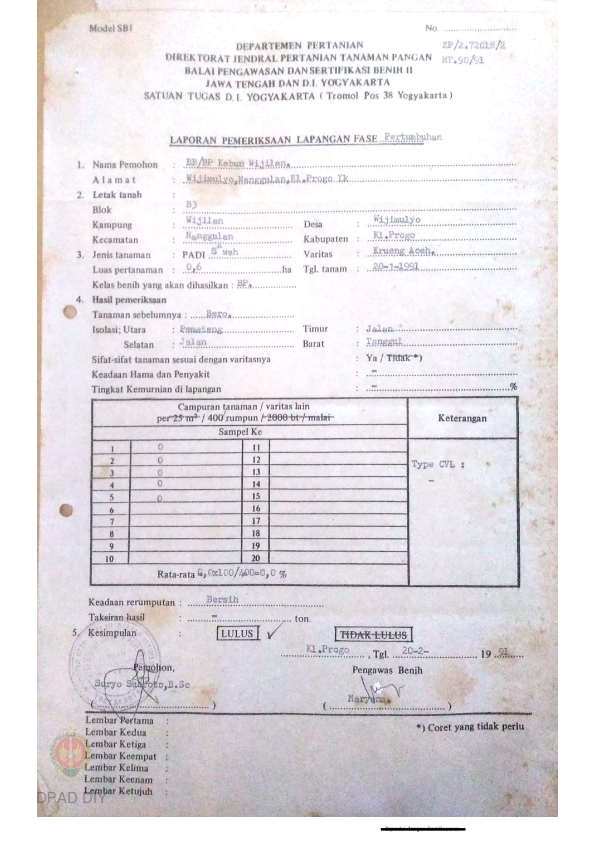 Model SB1
No.
ZP/2.72018/2
MT.90/91
DEPARTEMEN PERTANIAN
DIREKTORAT JENDRAL PERTANIAN TANAMAN PANGAN
BALAI PENGAWASAN DAN SERTIFIKASI BENIH II
JAWA TENGAH DAN D.I. YOGYAKARTA
SATUAN TUGAS D.I. YOGYAKARTA ( Tromol Pos 38 Yogyakarta )
LAPORAN PEMERIKSAAN LAPANGAN FASE Pertumbuhan
1. Nama Pemohon : BB/BP Kebun Wijilan.
A l a m a t : Wijimulyo,Nanggulan,Kl.Progo Yk
2. Letak tanah :
Blok : B3
Kampung : Wijilan Desa : Wijimulyo
Kecamatan : Nanggulan Kabupaten : Kl.Progo
3. Jenis tanaman : PADI Sawah Varitas : Krueng Aceh.
Luas pertanaman : 0,6 ha Tgl. tanam : 20-1-1991
Kelas benih yang akan dihasilkan : BP.
4. Hasil pemeriksaan
Tanaman sebelumnya : Bero.
Isolasi; Utara : Pematang Timur : Jalan
Selatan : Jalan Barat : Tanggul
Sifat-sifat tanaman sesuai dengan varitasnya : Ya / Tidak *)
Keadaan Hama dan Penyakit : -
Tingkat Kemurnian di lapangan : - %
Campuran tanaman / varitas lain
per 25 m² / 400 rumpun / 2000 bt / malai
Keterangan
Sampel Ke
1 0 11
2 0 12
3 0 13
4 0 14
5 0 15
6 16
7 17
8 18
9 19
10 20
Type CVL :
-
Rata-rata 0,0x100/400=0,0 %
Keadaan rerumputan : Bersih
Taksiran hasil : - ton.
5. Kesimpulan : LULUS ✓ TIDAK LULUS
Kl.Progo , Tgl. 20-2- 19 91
Pemohon, Pengawas Benih
Suryo Subroto,B.Sc
Maryono
( ) ( )
*) Coret yang tidak perlu
Lembar Pertama :
Lembar Kedua :
Lembar Ketiga :
Lembar Keempat :
Lembar Kelima :
Lembar Keenam :
Lembar Ketujuh :
DPAD DIY